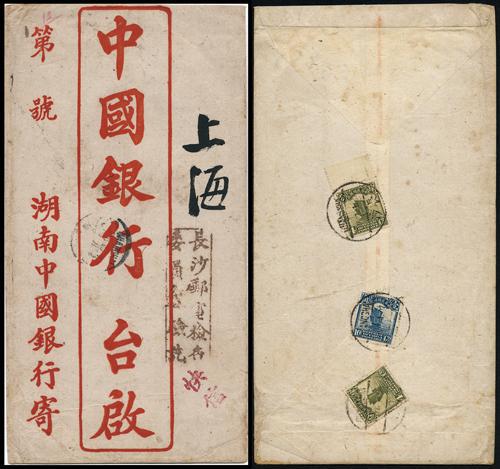 上海
長沙郵電檢查
委員會
快信
中國銀行 台啟
第 號
湖南中國銀行寄